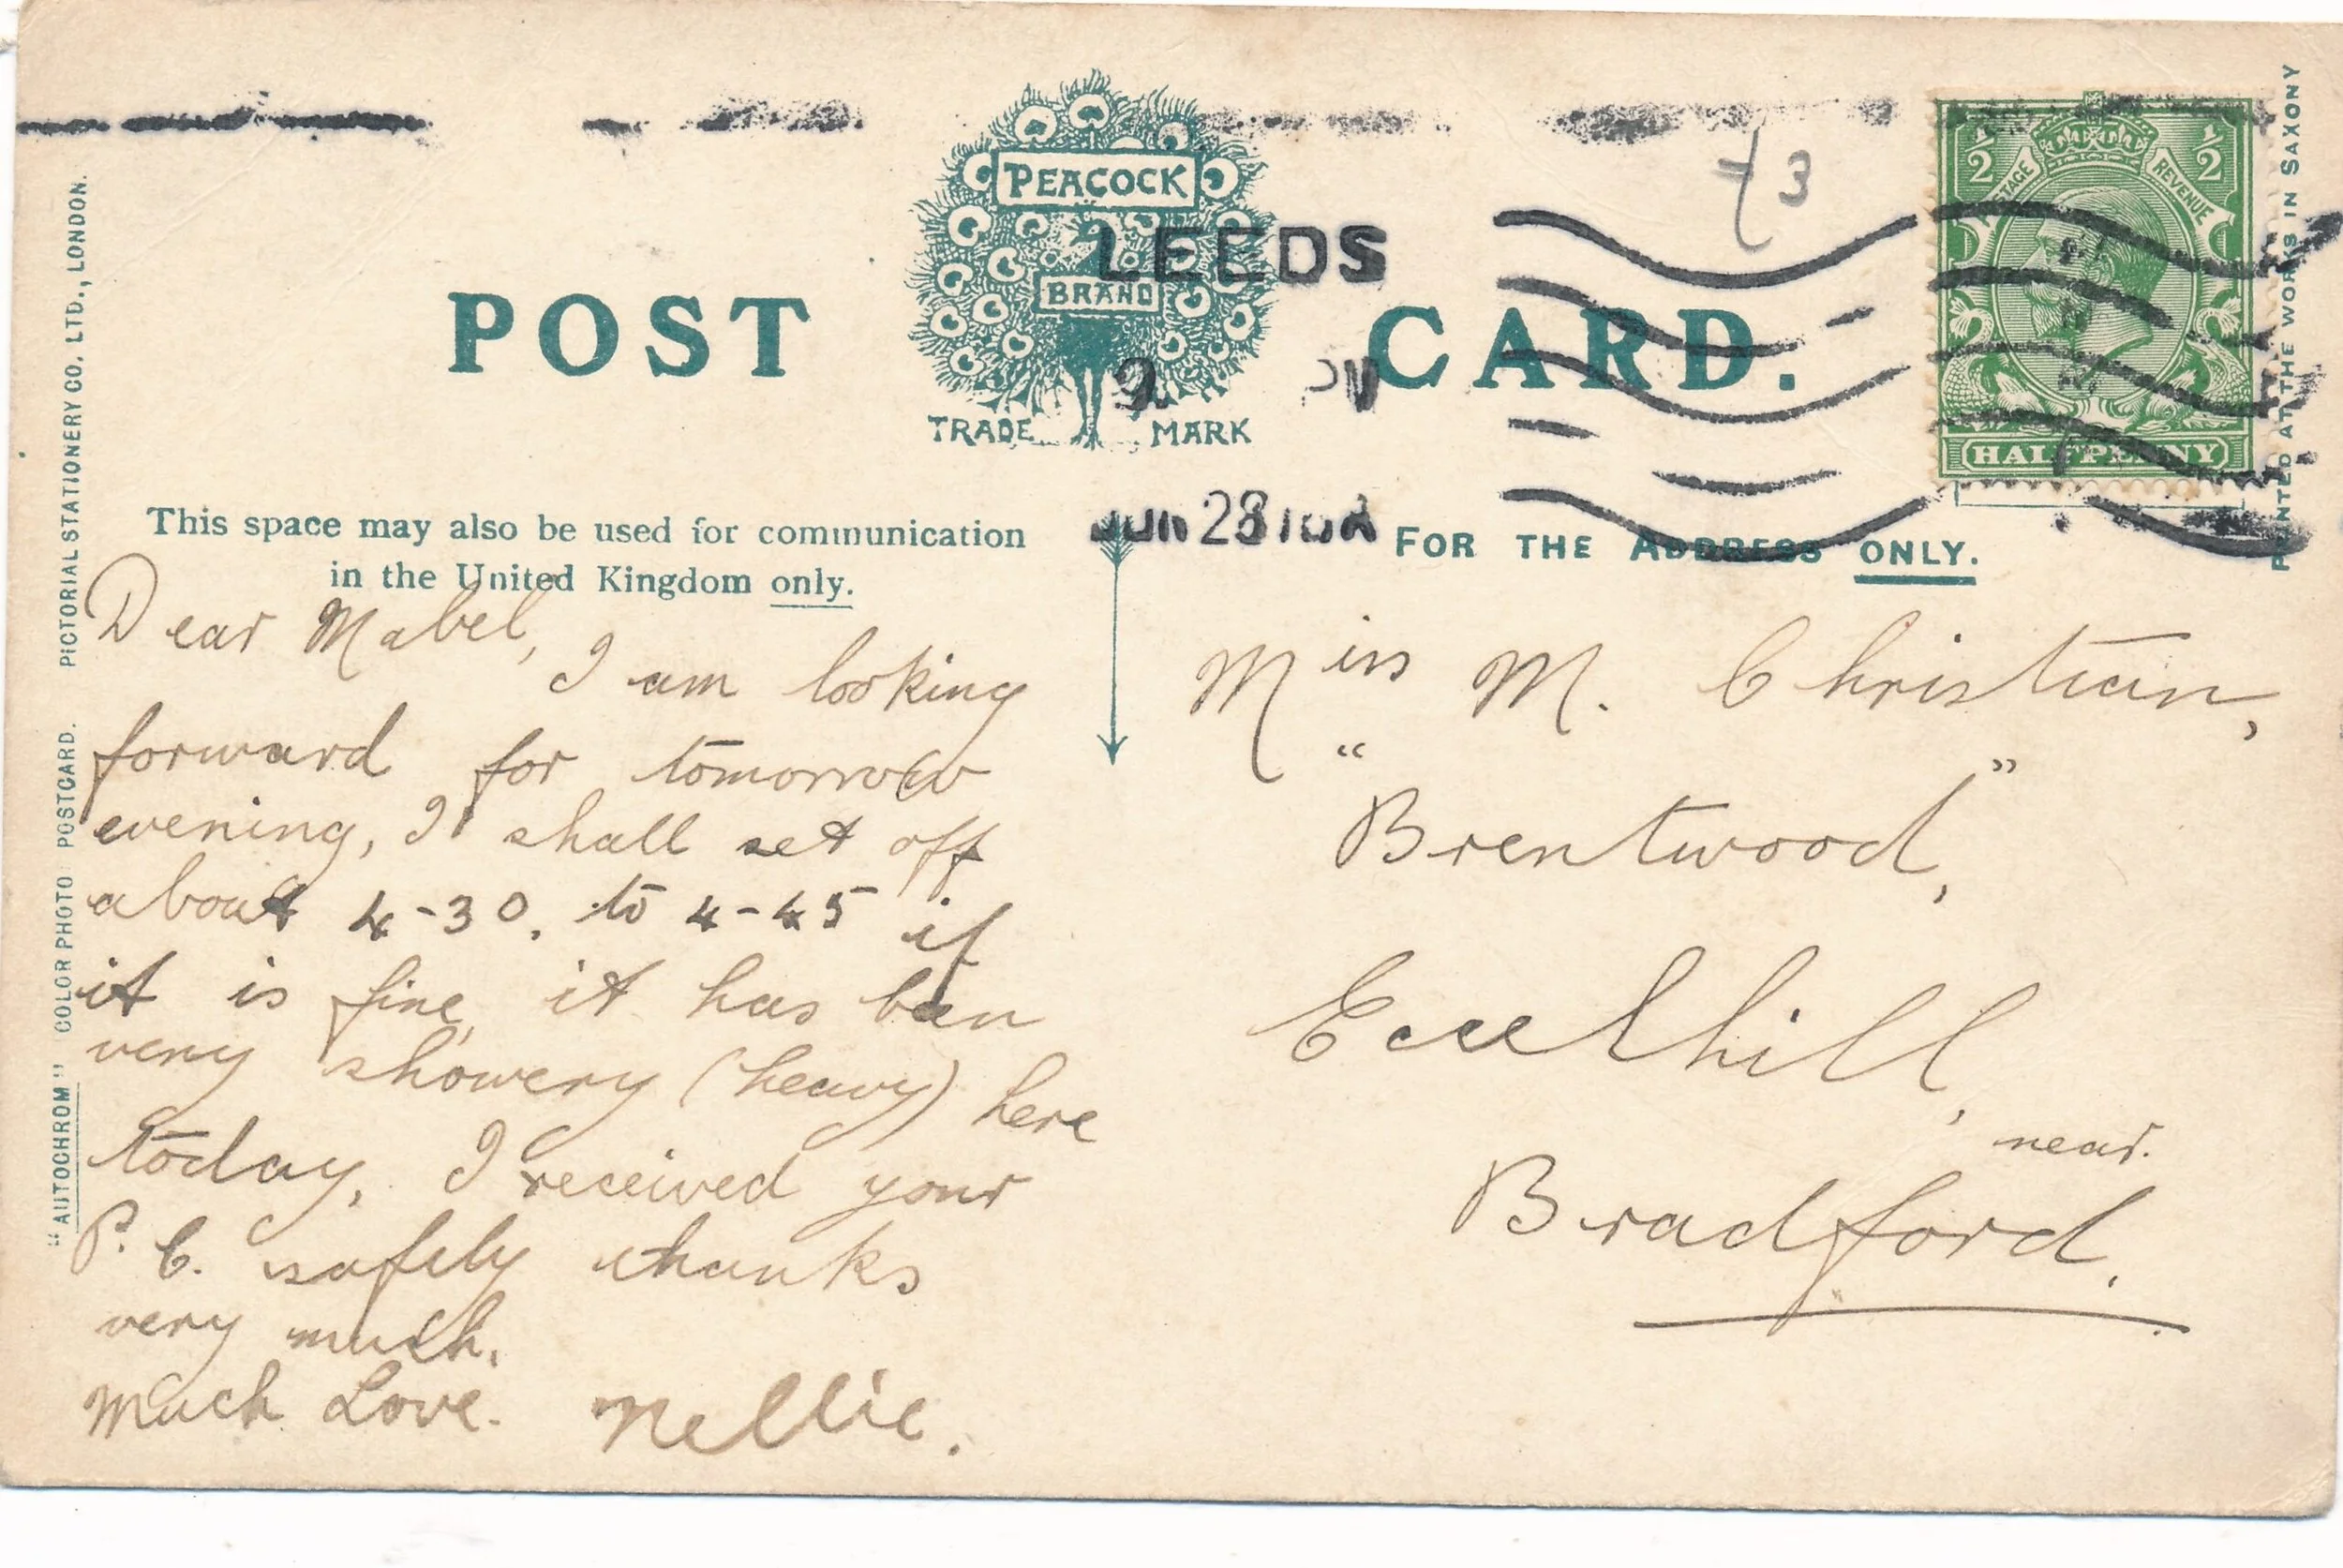 PEACOCK
BRAND
TRADE MARK
POST CARD.
LEEDS
9. PM
JUN 28
43
1/2 1/2
POSTAGE REVENUE
HALFPENNY
This space may also be used for communication
in the United Kingdom only.
FOR THE ADDRESS ONLY.
Dear Mabel, I am looking
forward for tomorrow
evening, I shall set off
about 4-30. to 4-45 if
it is fine, it has been
very showery (heavy) here
today, I received your
P.C. safely thanks
very much.
Much Love. Nellie.
Miss M. Christian,
"Brentwood,"
Eccelhill,
near.
Bradford.
"AUTOCHROM" COLOR PHOTO POSTCARD. PICTORIAL STATIONERY CO. LTD., LONDON.
PRINTED AT THE WORKS IN SAXONY